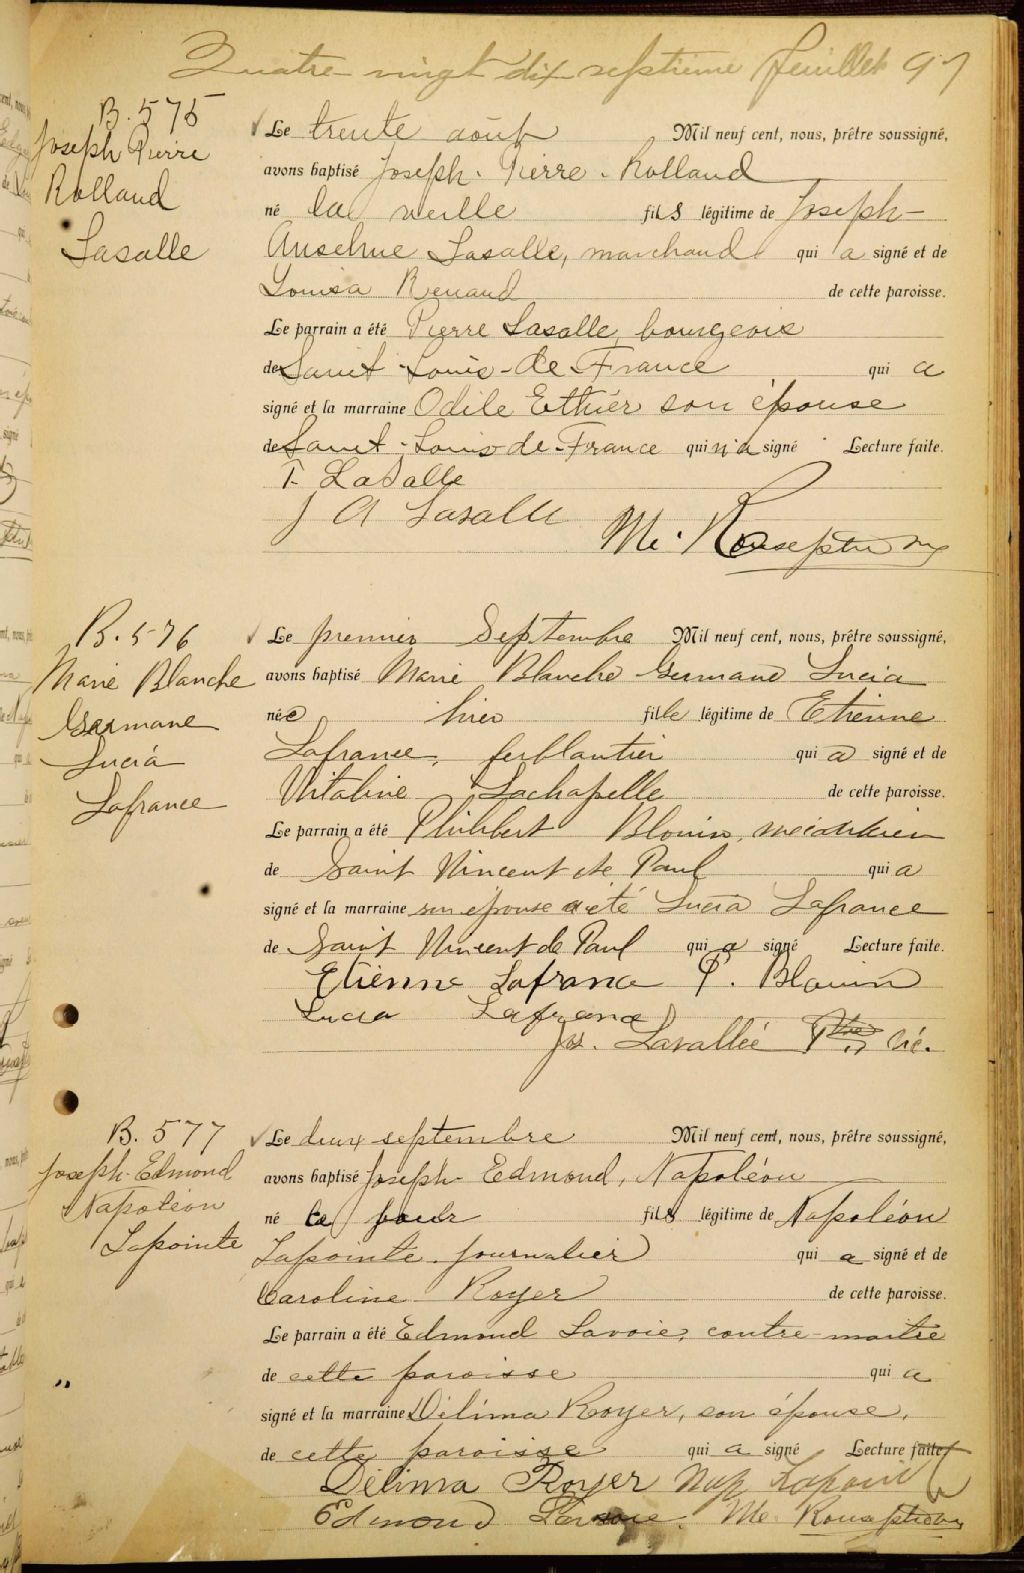 Quatre vingt dix septième feuillet 97
B. 575
Joseph Pierre
Rolland
Lasalle
Le trente août Mil neuf cent, nous, prêtre soussigné,
avons baptisé Joseph. Pierre. Rolland
né la veille fils légitime de Joseph-
Anselme Lasalle, marchand qui a signé et de
Louisa Renaud de cette paroisse.
Le parrain a été Pierre Lasalle, bourgeois
de Saint-Louis-de-France qui a
signé et la marraine Odile Ethier son épouse
de Saint-Louis-de-France qui n'a signé Lecture faite.
P. LaSalle
J A Lasalle
B. 576
Marie Blanche
Germane
Lucia
Lafrance
Le premier Septembre Mil neuf cent, nous, prêtre soussigné,
avons baptisé Marie Blanche Germane Lucia
née hier fille légitime de Etienne
Lafrance, ferblantier qui a signé et de
Vitaline Lachapelle de cette paroisse.
Le parrain a été Philibert Blouin, mécanicien
de Saint Vincent de Paul qui a
signé et la marraine son épouse a été Lucia Lafrance
de Saint Vincent de Paul qui a signé Lecture faite.
Etienne Lafrance P. Blouin
Lucia Lafrance
Jos. Lavallée Ptre Vic.
B. 577
Joseph-Edmond
Napoléon
Lapointe
Le deux septembre Mil neuf cent, nous, prêtre soussigné,
avons baptisé Joseph-Edmond, Napoléon
né ce jour fils légitime de Napoléon
Lapointe. journalier qui a signé et de
Caroline Royer de cette paroisse.
Le parrain a été Edmond Savoie, contre-maître
de cette paroisse qui a
signé et la marraine Délima Royer, son épouse,
de cette paroisse qui a signé Lecture faite
Délima Royer Nap Lapointe
Edmond Savoie.